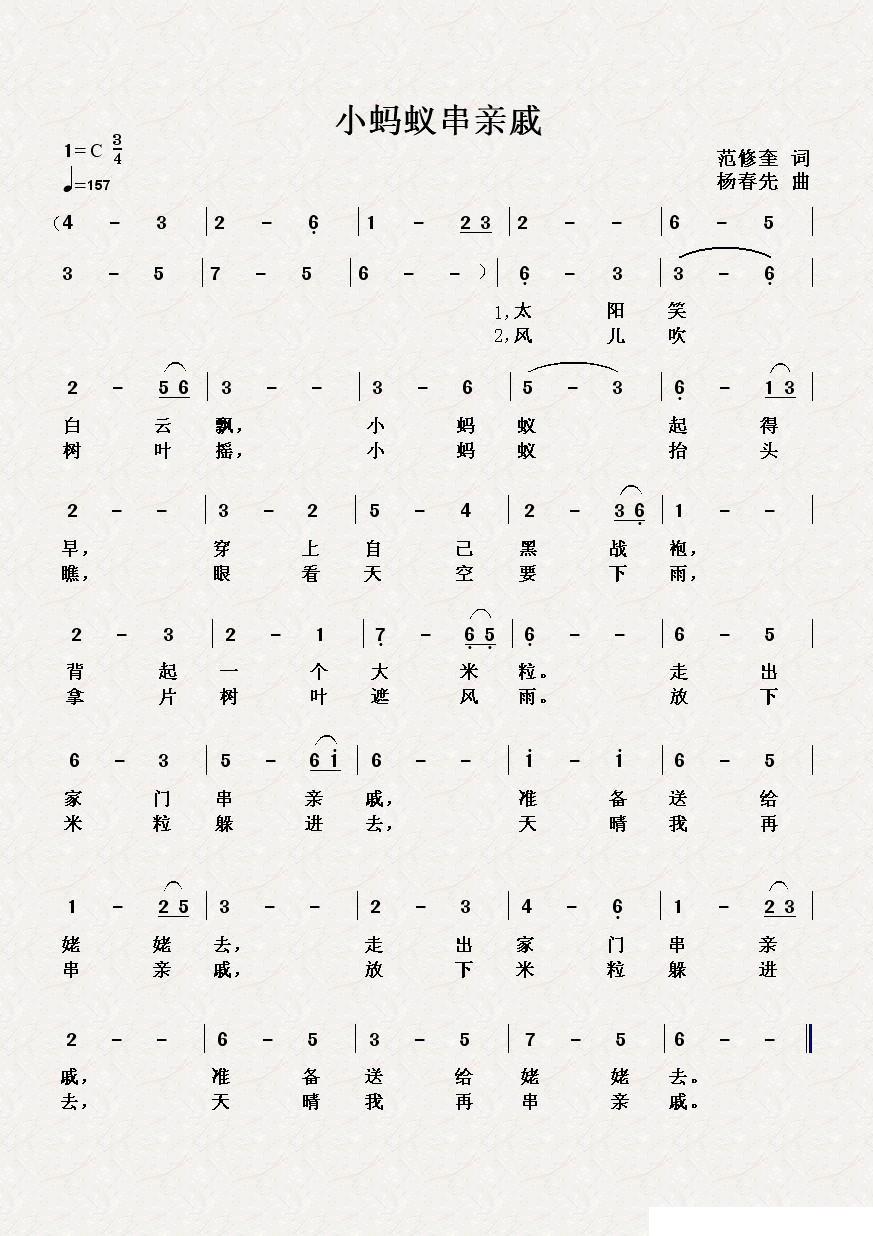 小蚂蚁串亲戚
1=C 3/4
♩=157
范修奎 词
杨春先 曲
(4 - 3 | 2 - 6̣ | 1 - 2 3 | 2 - - | 6 - 5 |
3 - 5 | 7 - 5 | 6 - - ) | 6̣ - 3 | 3 - 6̣ |
1,太 阳 笑
2,风 儿 吹
2 - 5 6 | 3 - - | 3 - 6 | 5 - 3 | 6̣ - 1 3 |
白 云 飘, 小 蚂 蚁 起 得
树 叶 摇, 小 蚂 蚁 抬 头
2 - - | 3 - 2 | 5 - 4 | 2 - 3 6̣ | 1 - - |
早, 穿 上 自 己 黑 战 袍,
瞧, 眼 看 天 空 要 下 雨,
2 - 3 | 2 - 1 | 7̣ - 6̣ 5̣ | 6̣ - - | 6 - 5 |
背 起 一 个 大 米 粒。 走 出
拿 片 树 叶 遮 风 雨。 放 下
6 - 3 | 5 - 6 1̇ | 6 - - | 1̇ - 1̇ | 6 - 5 |
家 门 串 亲 戚, 准 备 送 给
米 粒 躲 进 去, 天 晴 我 再
1 - 2 5 | 3 - - | 2 - 3 | 4 - 6̣ | 1 - 2 3 |
姥 姥 去, 走 出 家 门 串 亲
串 亲 戚, 放 下 米 粒 躲 进
2 - - | 6 - 5 | 3 - 5 | 7 - 5 | 6 - - ‖
戚, 准 备 送 给 姥 姥 去。
去, 天 晴 我 再 串 亲 戚。